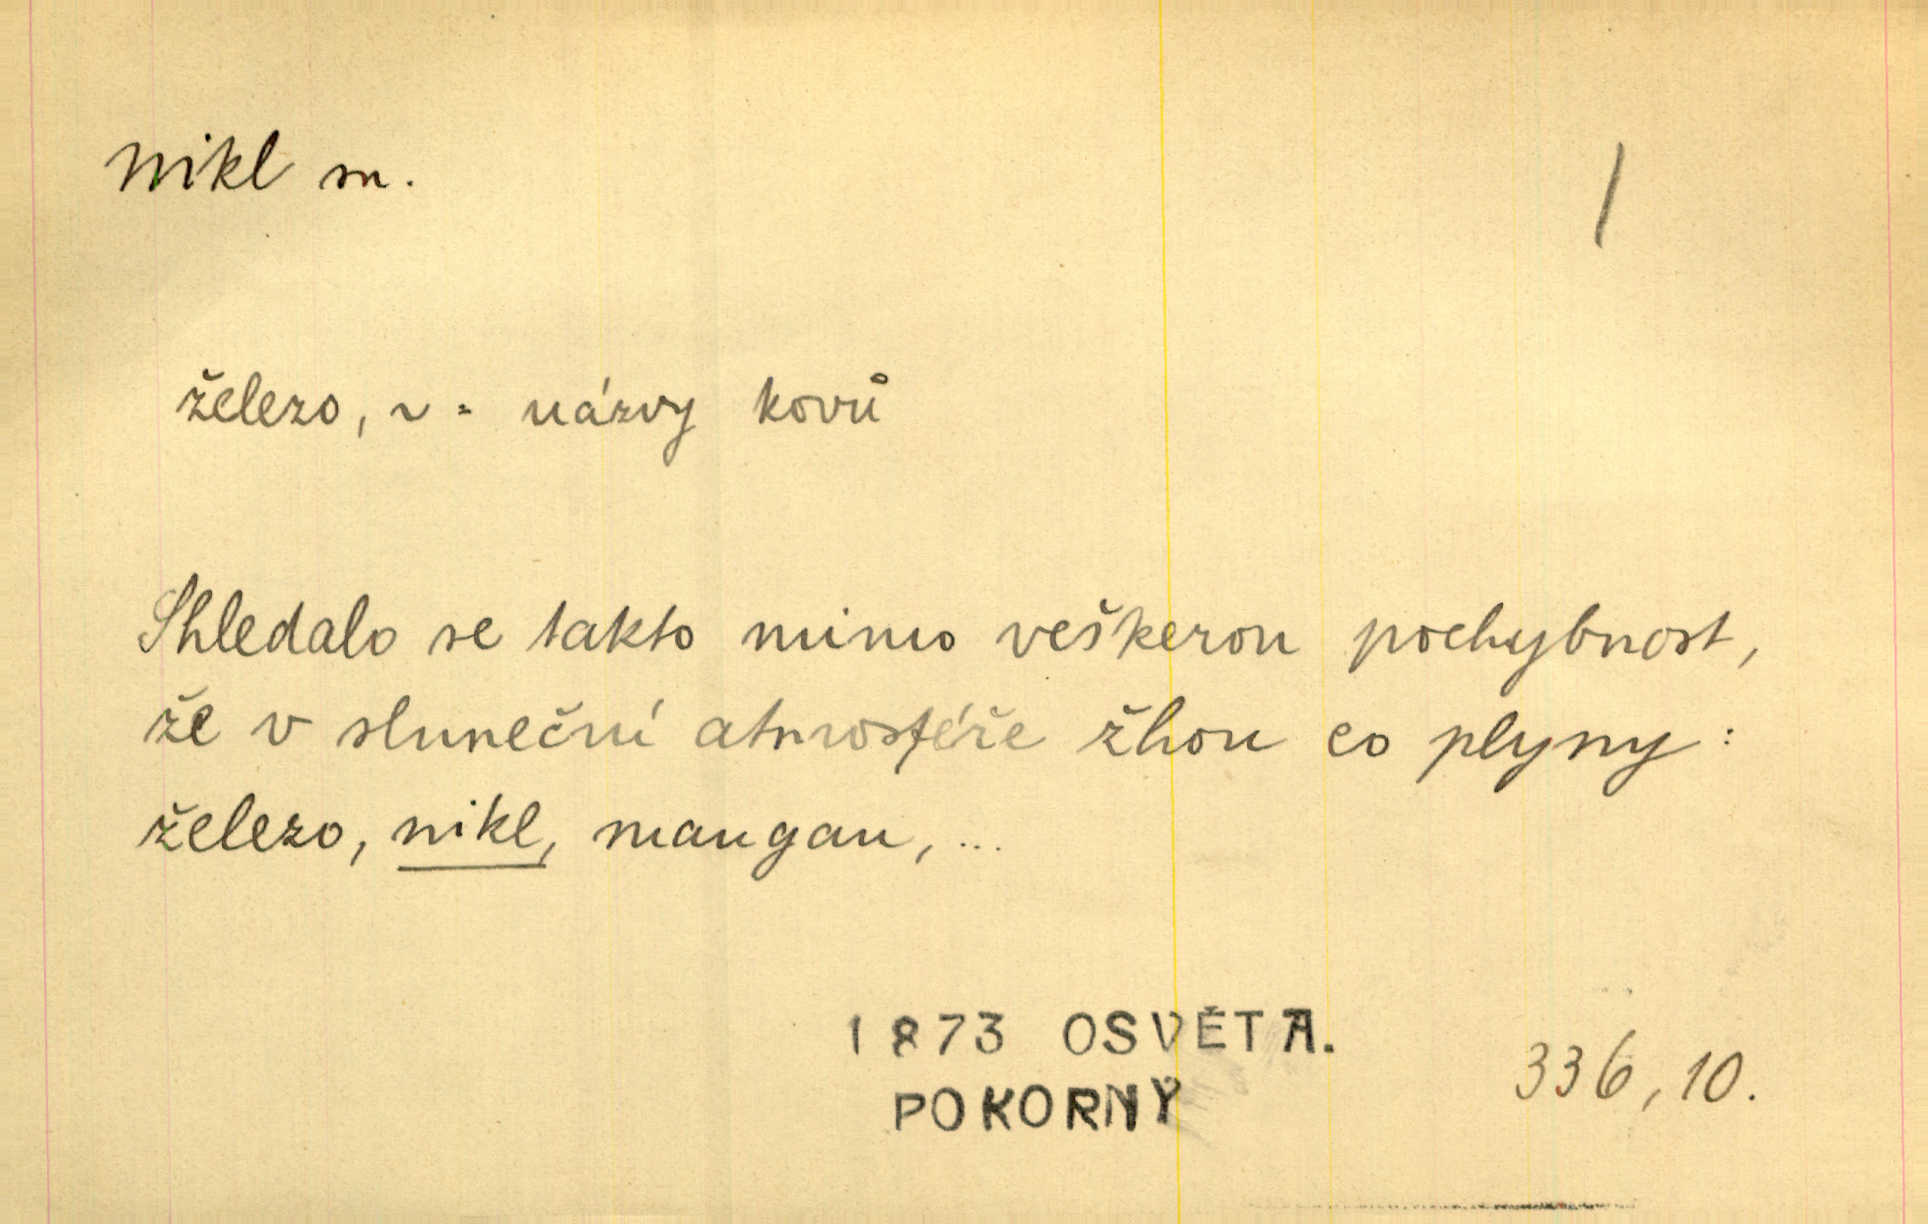 nikl m.
/
železo, ~ = názvy kovů
Shledalo se takto mimo veškerou pochybnost,
že v sluneční atmosféře žhou co plyny:
železo, nikl, mangan, ...
1873 OSVĚTA.
POKORNÝ
336, 10.